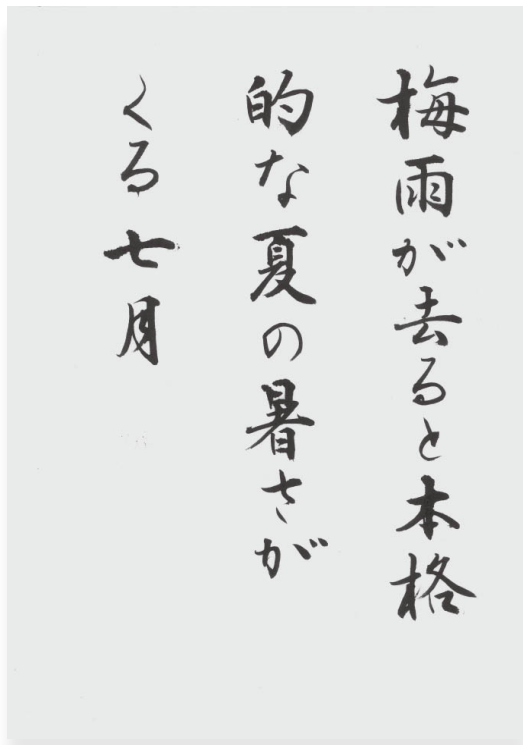 梅雨が去ると本格
的な夏の暑さが
くる七月